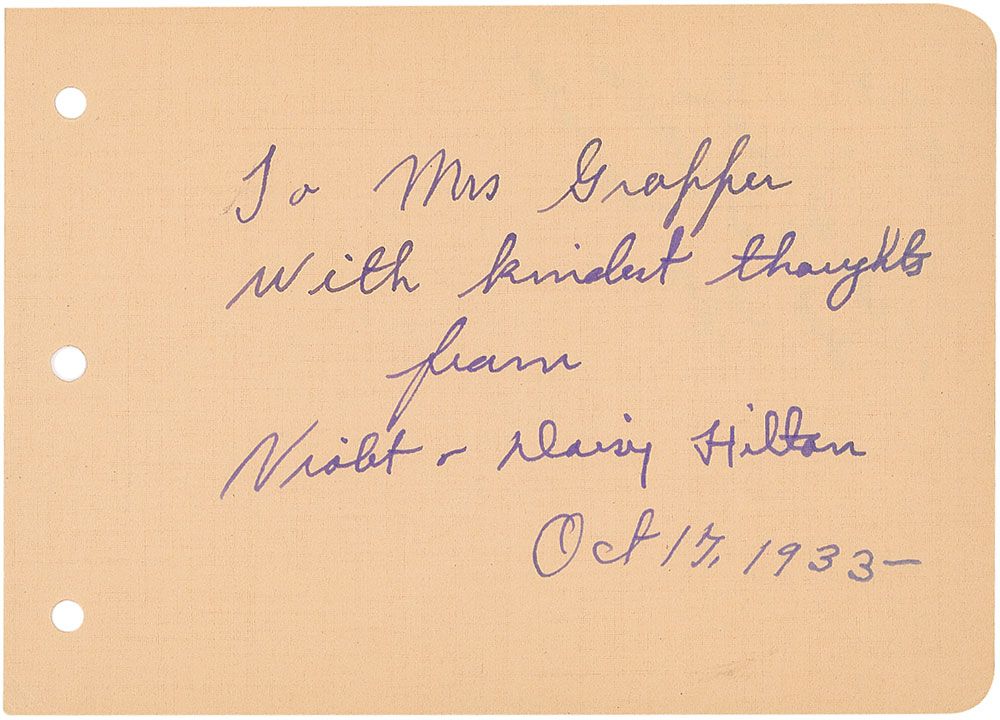 To Mrs Grapper
With kindest thoughts
from
Violet & Daisy Hilton
Oct 17, 1933–